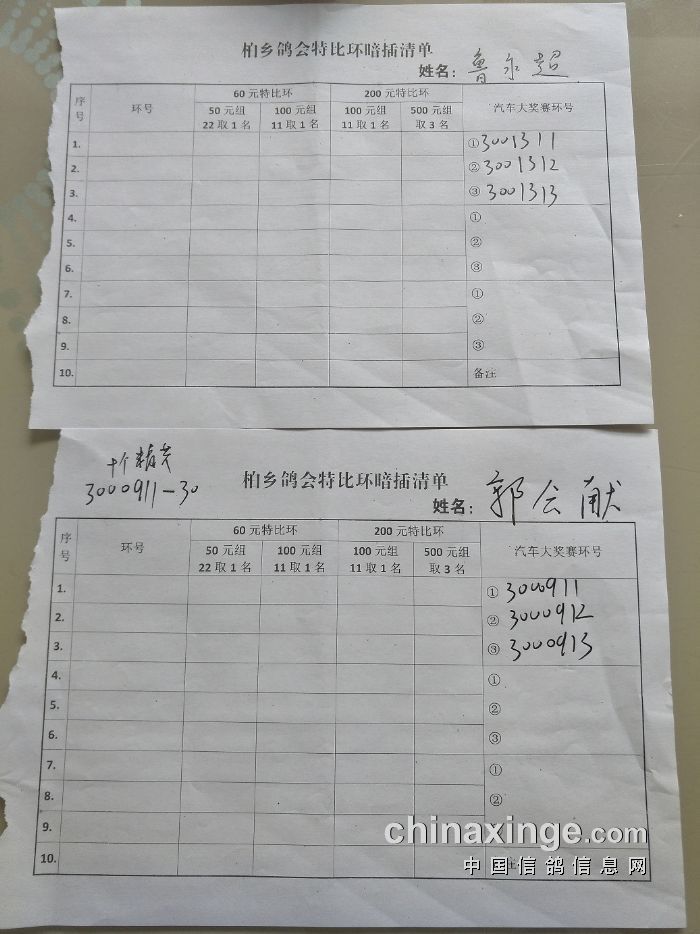 柏乡鸽会特比环暗插清单
姓名：鲁永超
序号 环号 60 元特比环 200 元特比环 汽车大奖赛环号
50 元组 22 取 1 名 100 元组 11 取 1 名 100 元组 11 取 1 名 500 元组 取 3 名
1. ①3001311
2. ②3001312
3. ③3001313
4. ①
5. ②
6. ③
7. ①
8. ②
9. ③
10. 备注
3000911-30
柏乡鸽会特比环暗插清单
姓名：郭会献
序号 环号 60 元特比环 200 元特比环 汽车大奖赛环号
50 元组 22 取 1 名 100 元组 11 取 1 名 100 元组 11 取 1 名 500 元组 取 3 名
1. ①3000911
2. ②3000912
3. ③3000913
4. ①
5. ②
6. ③
7. ①
8. ②
9.
chinaxinge.com
10.
中国信鸽信息网